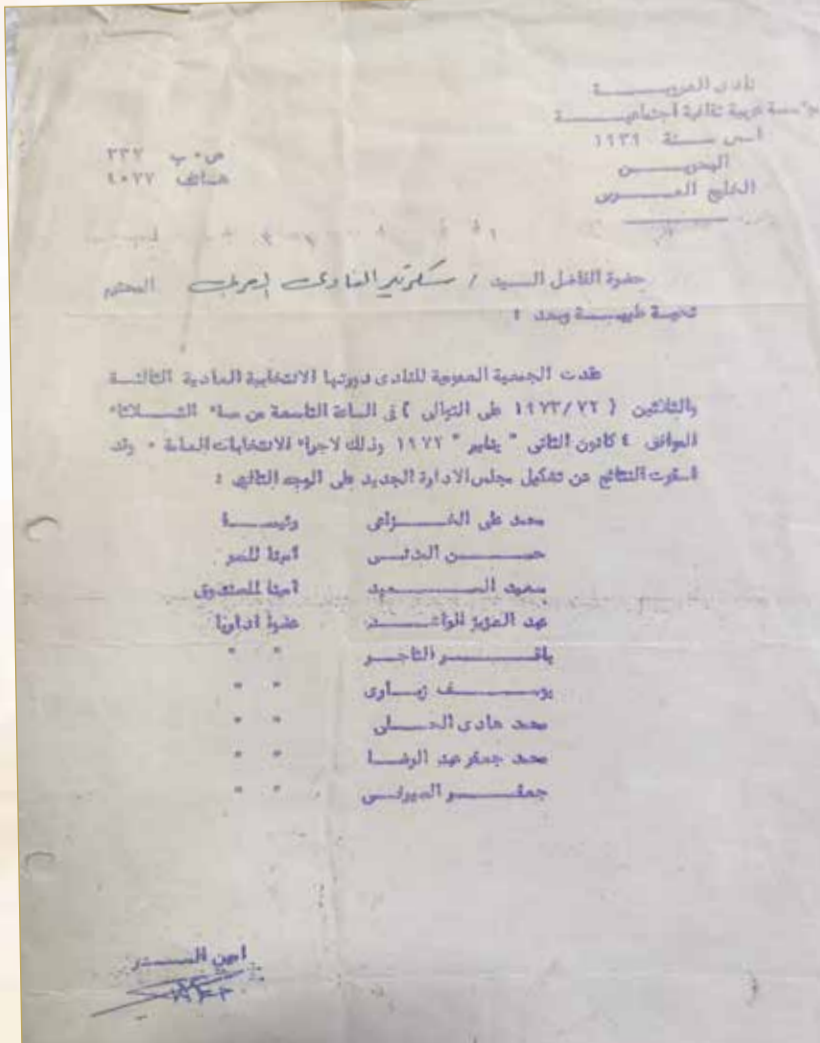 نادى العروبـــــــــة
مؤسسة عربية ثقافية اجتماعيـــــــة
أسس ســـــنة ١٩٣٩
البحريـــــــــن
الخليج العـــــــربى
ص٠ب ٢٣٧
هـاتف ٤٠٧٧
حضرة الفاضل السـيد / سكرتير النادى المحترم
تحيـة طيبـــــة وبعد :
عقدت الجمعية العمومية للنادى دورتها الانتخابية العادية الثالثـــة
والثلاثين ( ١٩٧٣/٧٢ على التوالى ) فى الساعة التاسعة من مساء الثـــلاثاء
الموافق ٤ كانون الثانى " يناير " ١٩٧٢ وذلك لاجراء الانتخابات العامة ٠ وقد
اسفرت النتائج عن تشكيل مجلس الادارة الجديد على الوجه التالى :
محمد على الخـــــــزاعى رئيســـــــا
حســـــــن أمينا للسر
سعيد أمينا للصندوق
عبد العزيز الراشـــــــد عضوا اداريا
باقـــــــــــر التاجـــــر " "
يوســـــــف زبـــــارى " "
محمد هادى الحـــــلى " "
محمد جعفر عبد الرضـــا " "
جعفـــــــــر الصيرفـــى " "
امين الســـــر